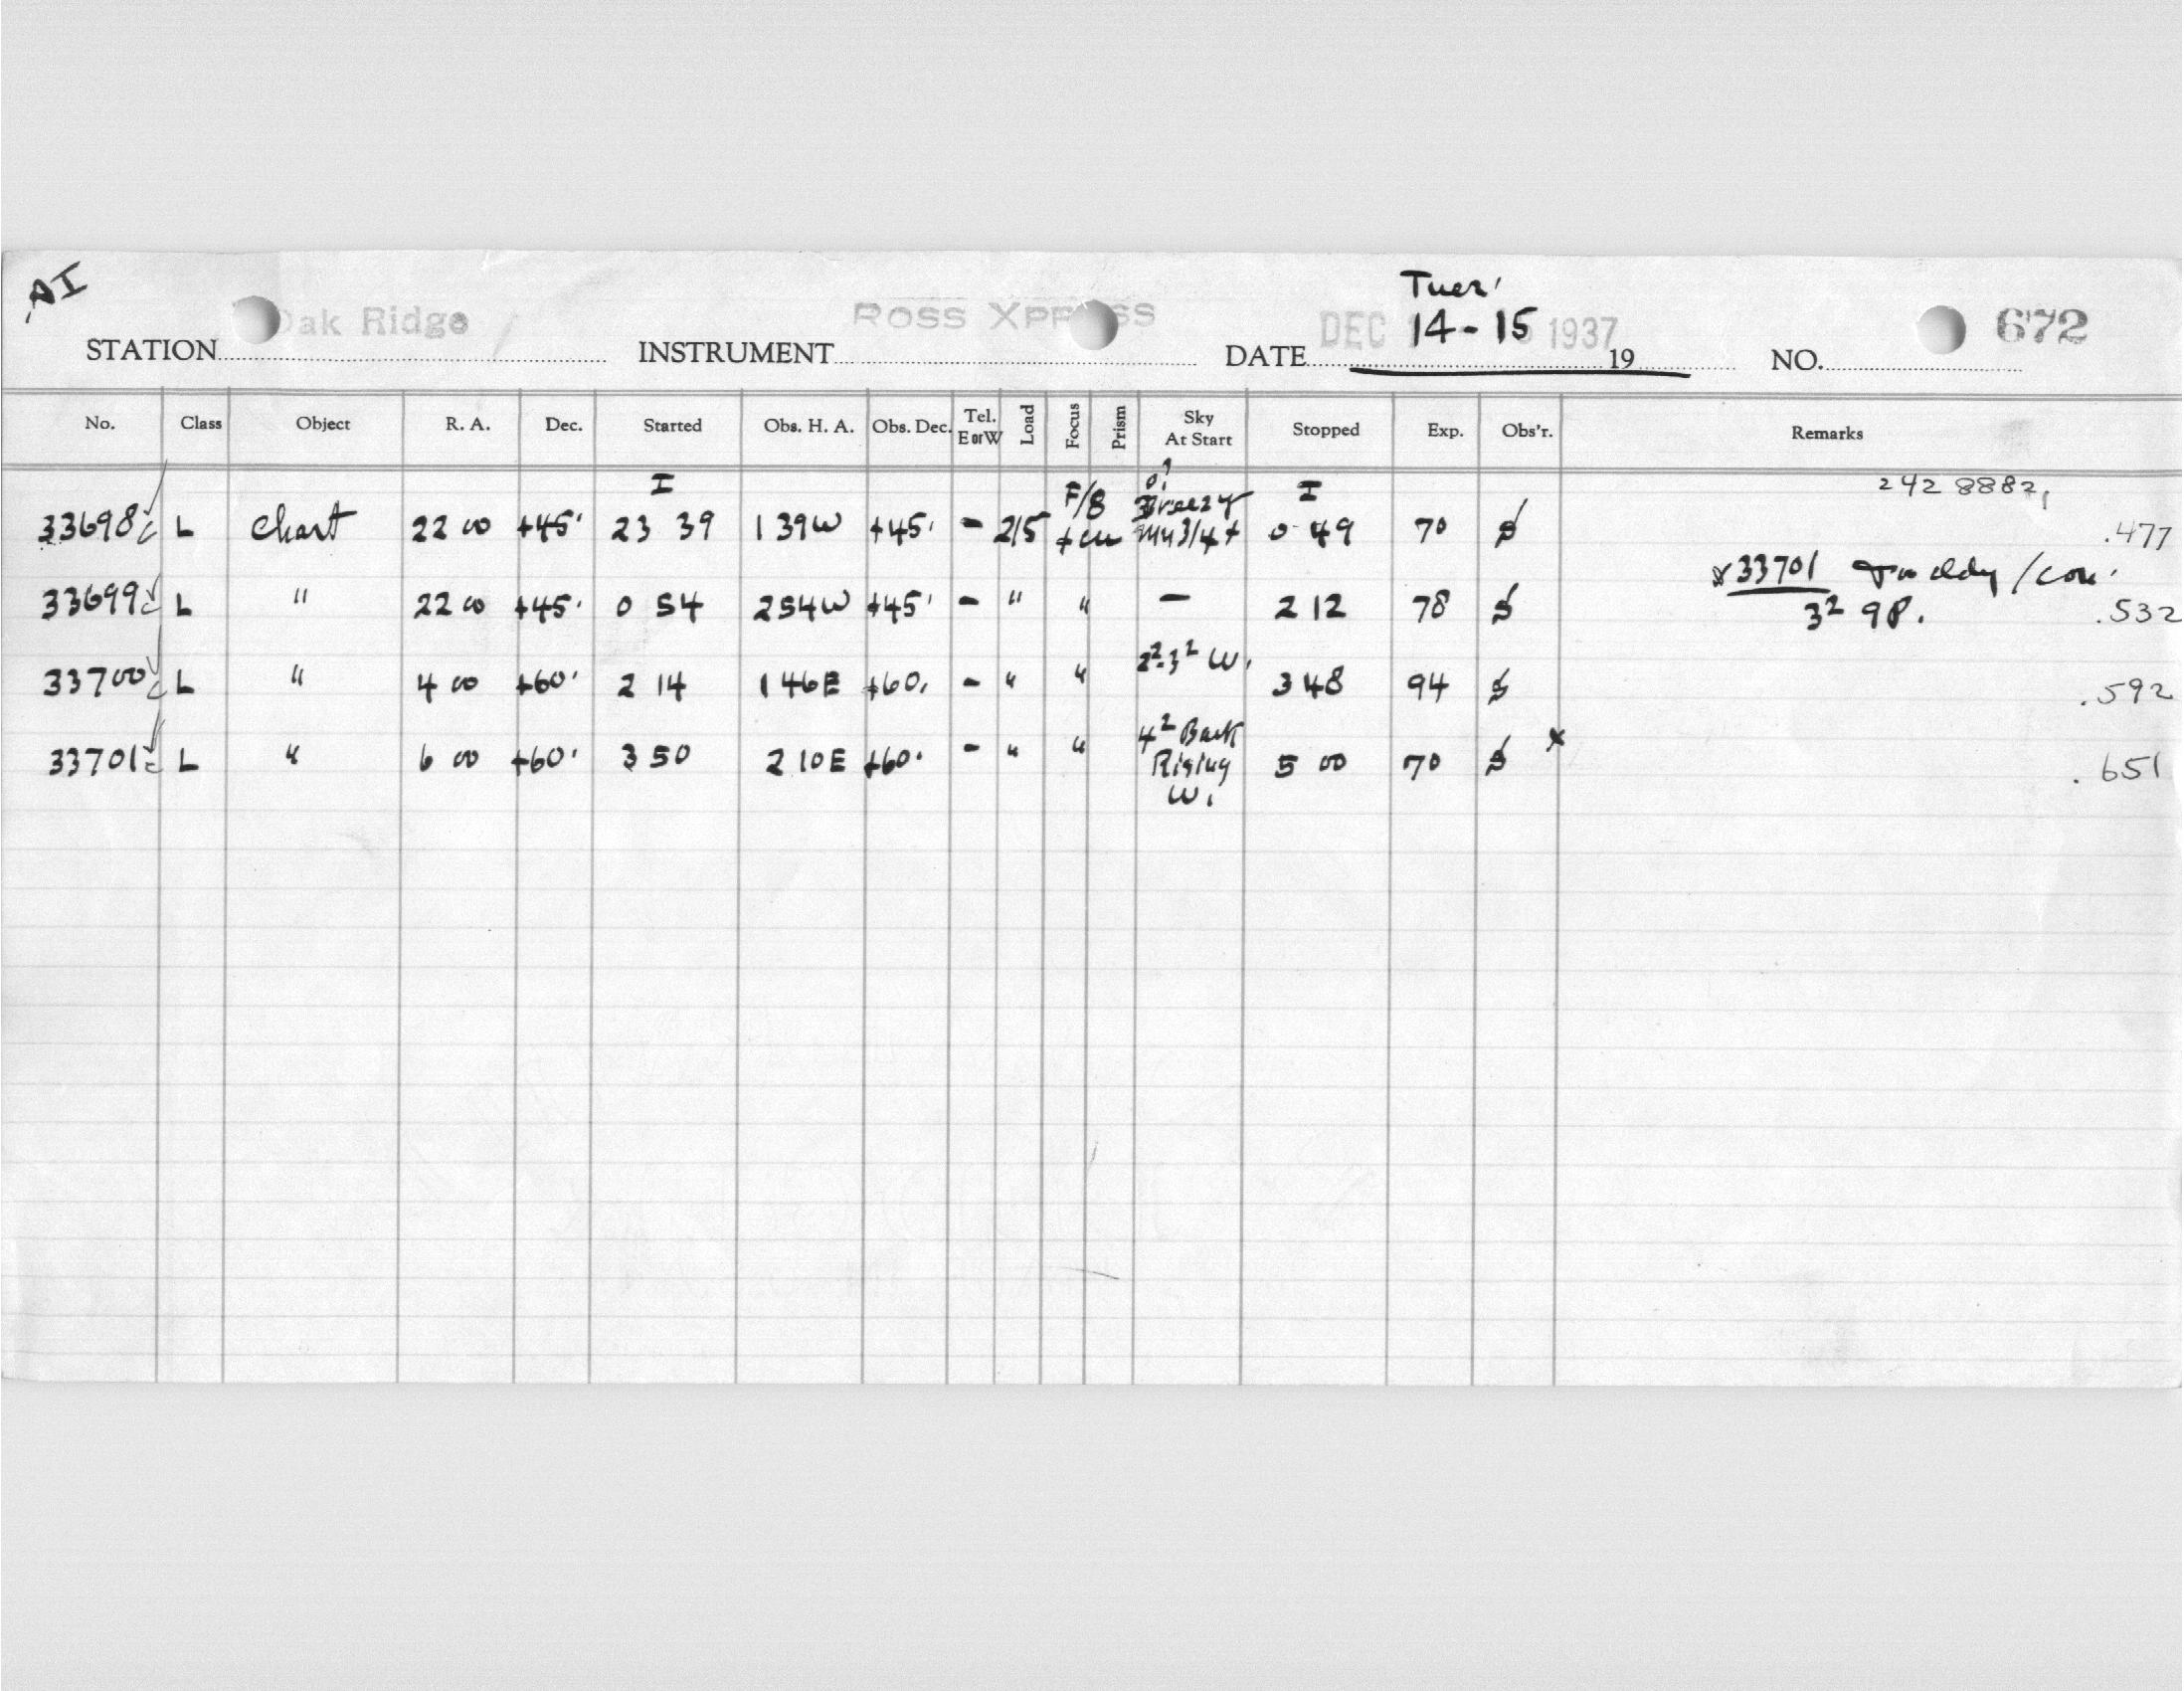 AI
Tues'
Oak Ridge ROSS XPRESS DEC 14-15 1937 672
STATION INSTRUMENT DATE 19 NO.
No. Class Object R. A. Dec. Started Obs. H. A. Obs. Dec. Tel. E or W Load Focus Prism Sky At Start Stopped Exp. Obs'r. Remarks
I F/8 0? Breezy I 242 8882,
33698 L Chart 22 00 +45' 23 39 1 39W +45' - 2/5 Mn 3/4 + 0 49 70 .477
* 33701 /con'
33699 L " 22 00 +45' 0 54 2 54W +45' - " " - 2 12 78 3² 9P. .532
33700 L " 4 00 +60' 2 14 1 46E +60' - " " 2²-3² W. 3 48 94 .592
33701 L " 6 00 +60' 3 50 2 10E +60' - " " 4² Bank Rising W. 5 00 70 x .651